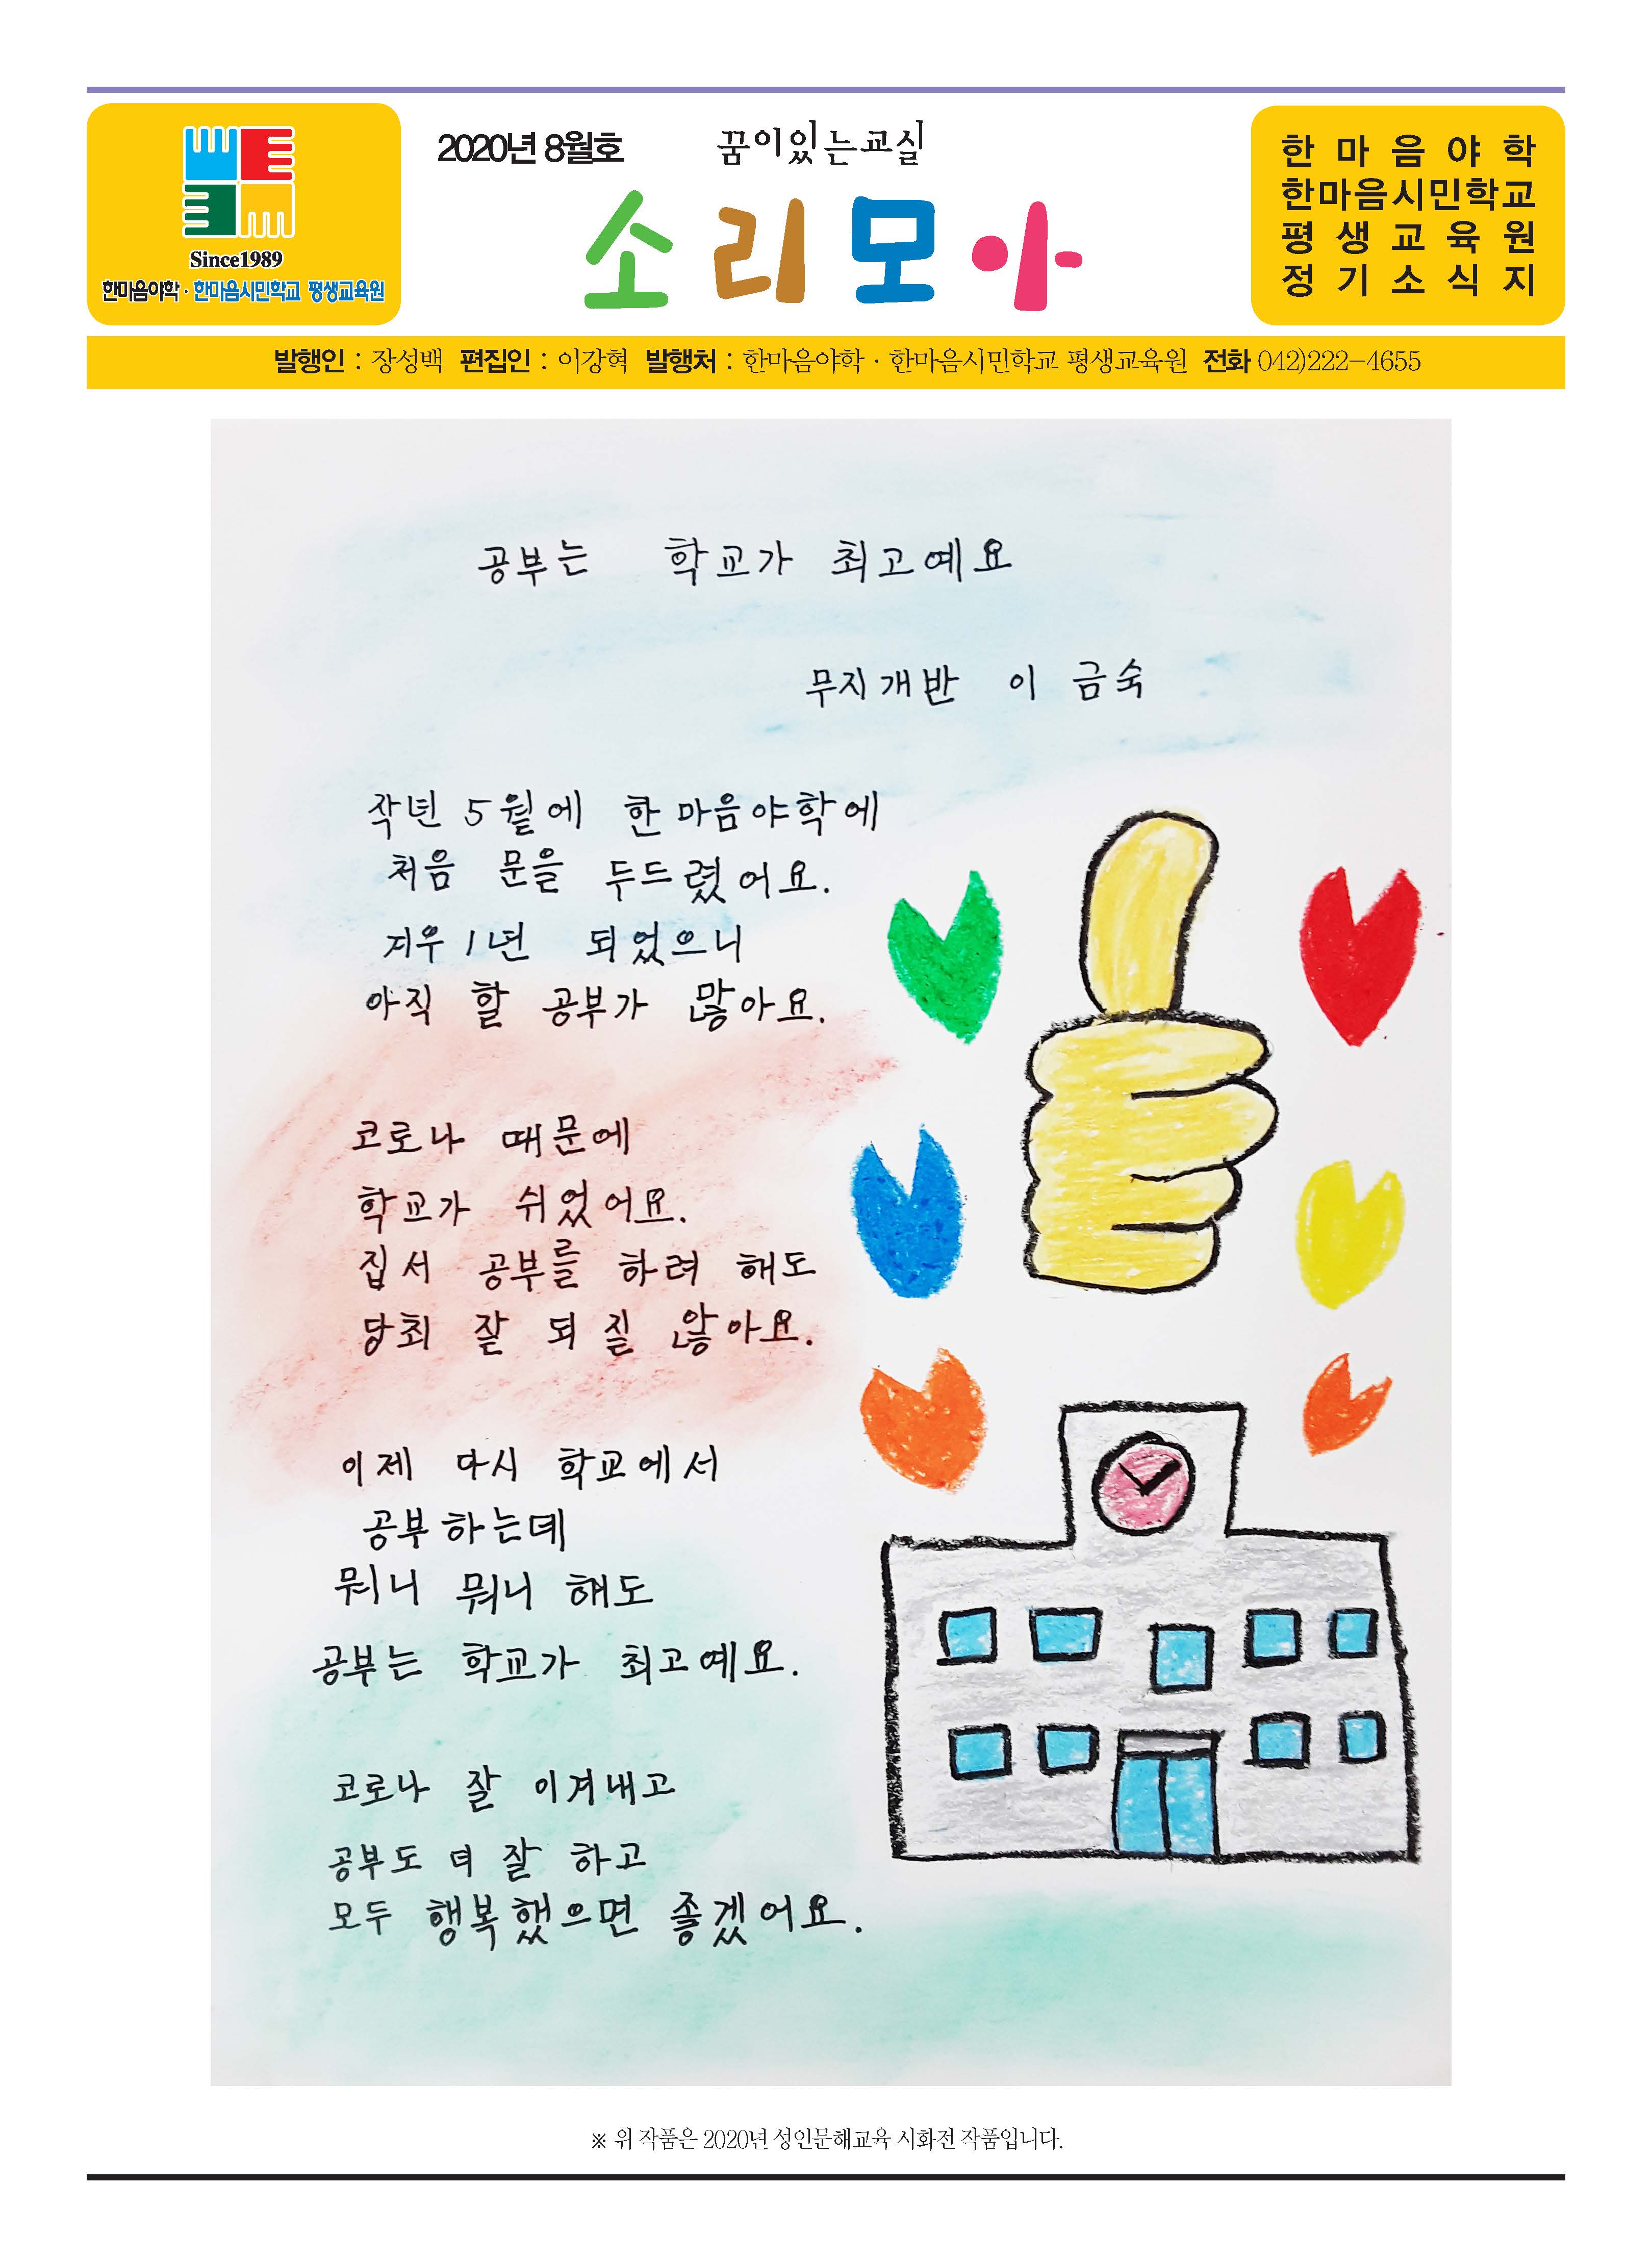 Since1989
한마음야학 · 한마음시민학교 평생교육원
2020년 8월호
꿈이있는교실
소리모아
한마음야학
한마음시민학교
평생교육원
정기소식지
발행인 : 장성백 편집인 : 이강혁 발행처 : 한마음야학 · 한마음시민학교 평생교육원 전화 042)222-4655
공부는 학교가 최고예요
무지개반 이 금숙
작년 5월에 한마음야학에
처음 문을 두드렸어요.
겨우 1년 되었으니
아직 할 공부가 많아요.
코로나 때문에
학교가 쉬었어요.
집서 공부를 하려 해도
당최 잘 되질 않아요.
이제 다시 학교에서
공부하는데
뭐니 뭐니 해도
공부는 학교가 최고예요.
코로나 잘 이겨내고
공부도 더 잘 하고
모두 행복했으면 좋겠어요.
※ 위 작품은 2020년 성인문해교육 시화전 작품입니다.